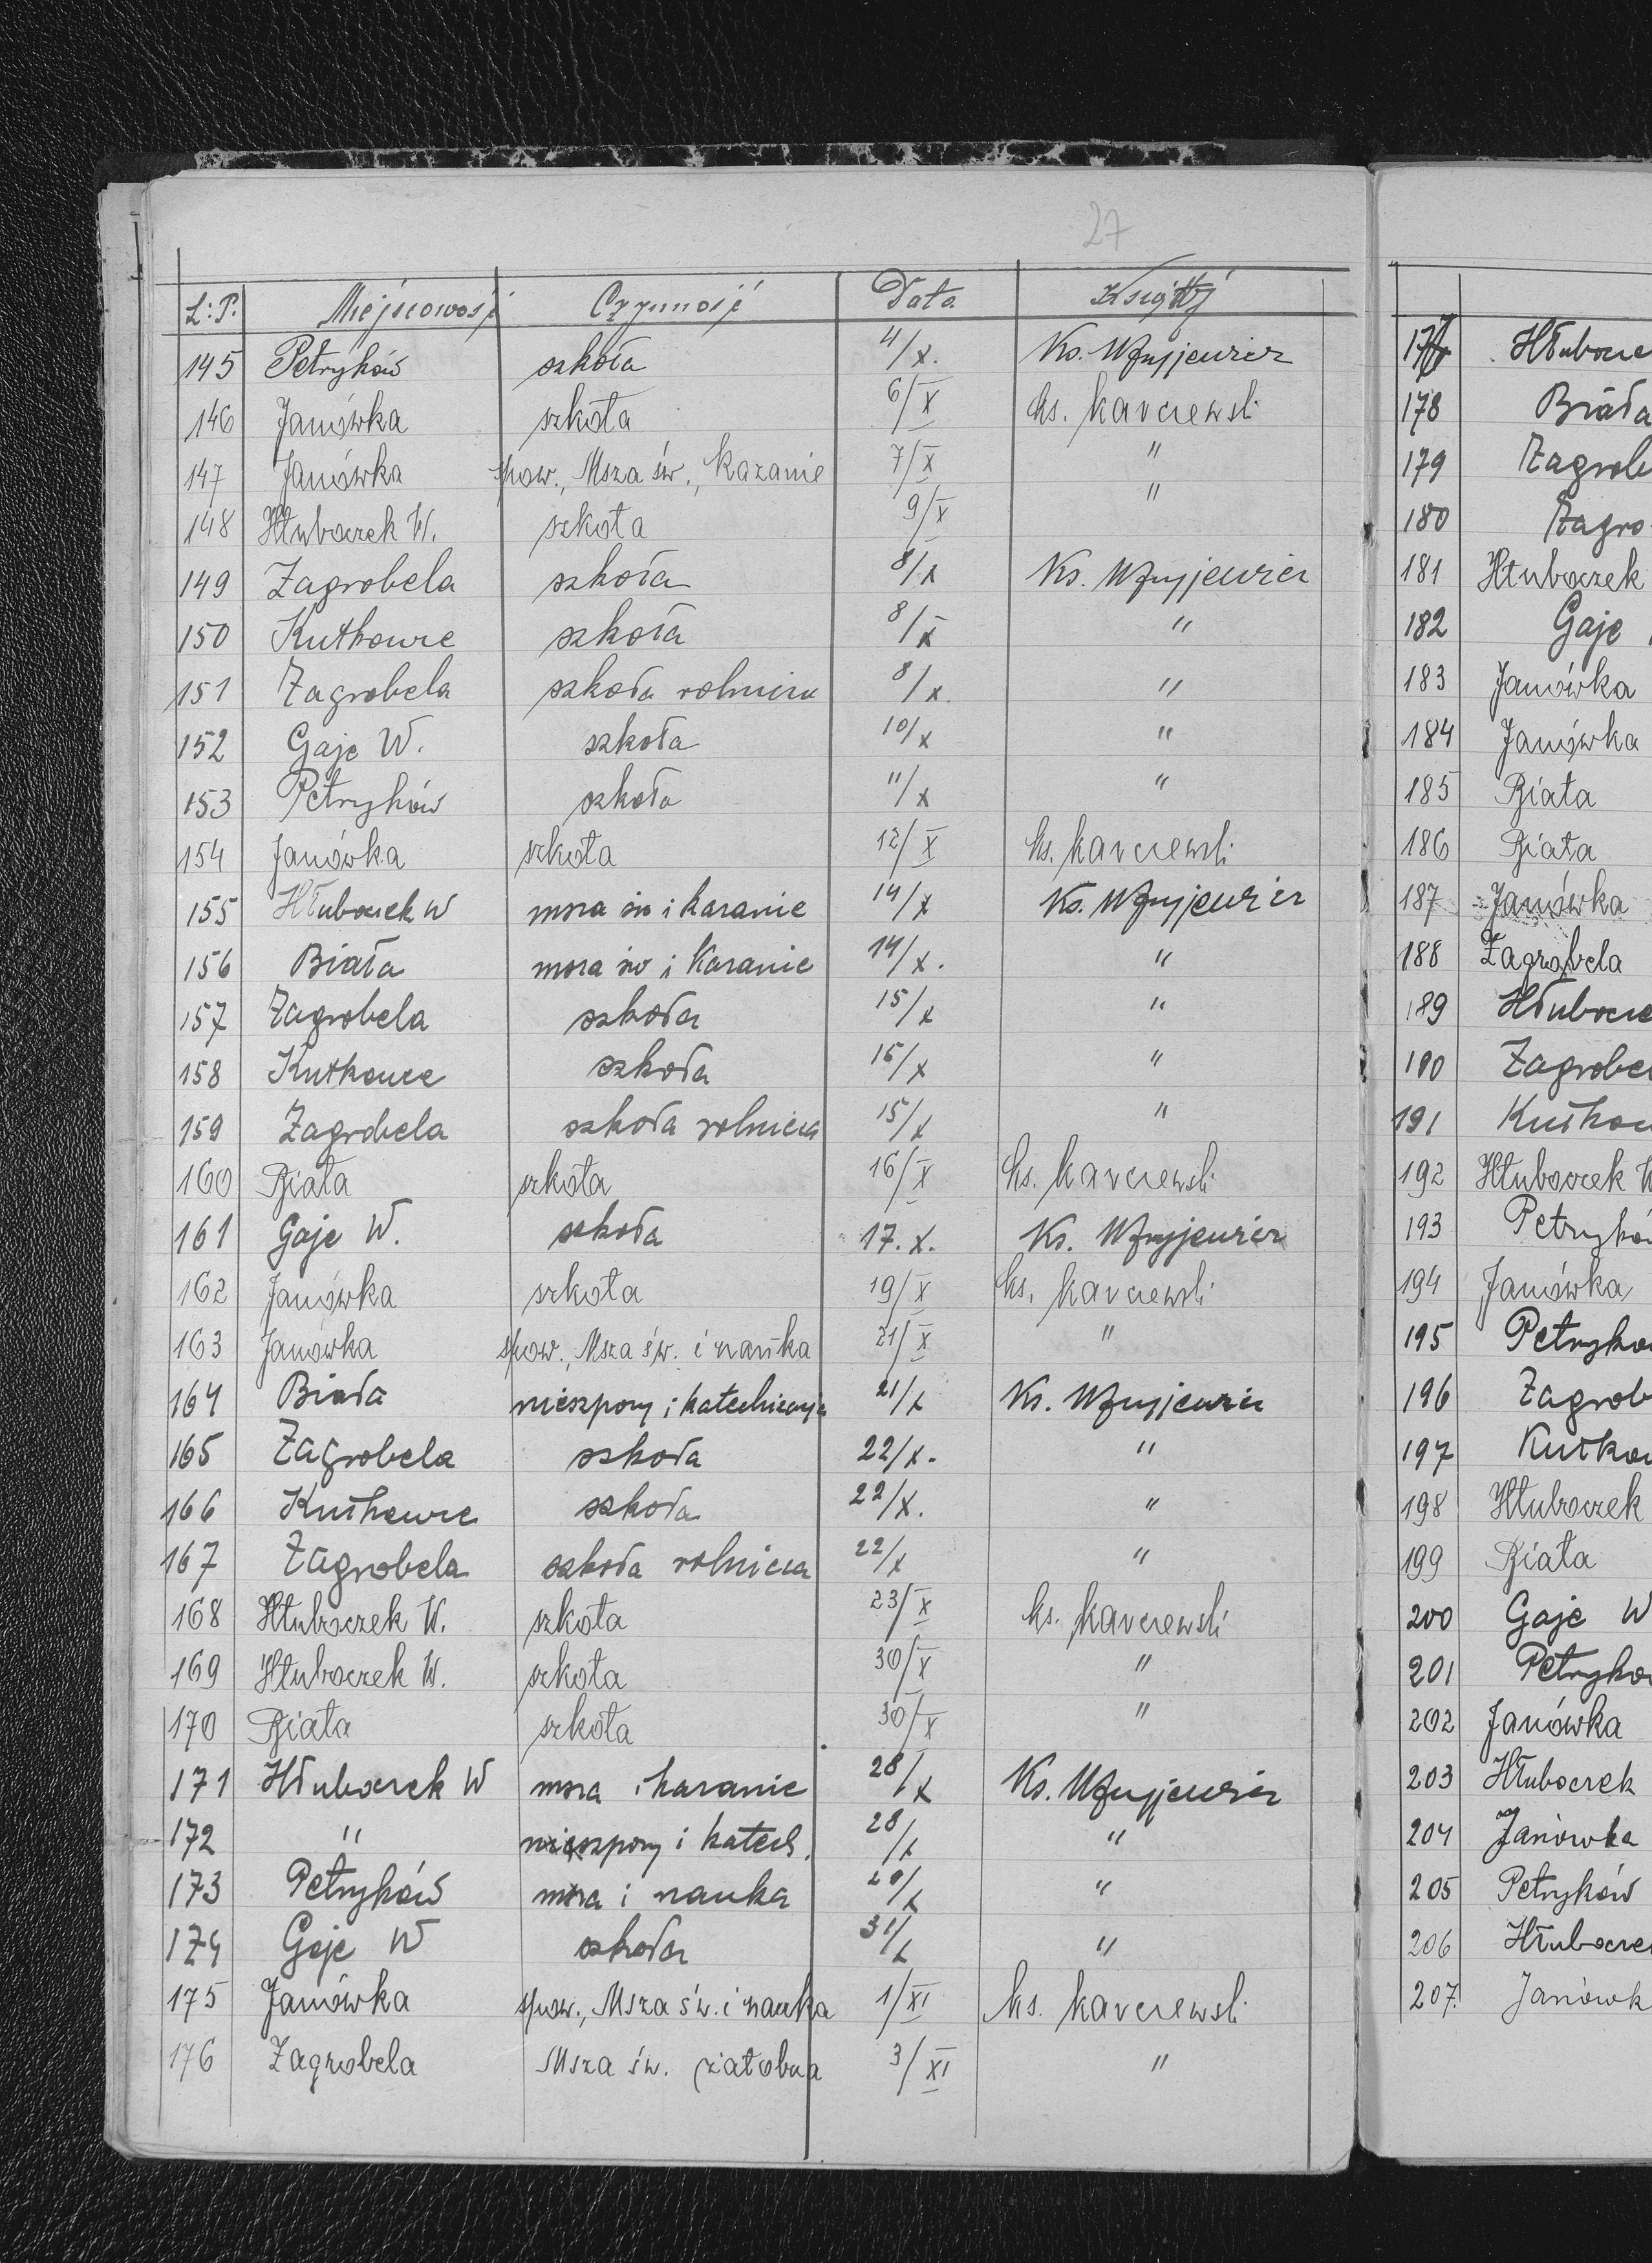 27
L:P. Miejscowość Czynność Data Ksiądz
145 Petryków szkoła 4/X. Ks.
146 Janówka szkoła 6/X ks. Karczewski
147 Janówka spow., Msza św., Kazanie 7/X "
148 Hłuboczek W. szkoła 9/X "
149 Zagrobela szkoła 8/X Ks.
150 Kutkowce szkoła 8/X "
151 Zagrobela szkoła rolnicza 8/X. "
152 Gaje W. szkoła 10/X "
153 Petryków szkoła 11/X "
154 Janówka szkoła 12/X ks. Karczewski
155 Hłuboczek W msza św i kazanie 14/X Ks.
156 Biała msza św i Kazanie 14/X. "
157 Zagrobela szkoła 15/X "
158 Kutkowce szkoła 15/X "
159 Zagrobela szkoła rolnicza 15/X "
160 Biała szkoła 16/X ks. Karczewski
161 Gaje W. szkoła 17. X. Ks.
162 Janówka szkoła 19/X ks. Karczewski
163 Janówka spow., Msza św. i nauka 21/X "
164 Biała nieszpory i katechizacja 21/X Ks.
165 Zagrobela szkoła 22/X. "
166 Kutkowce szkoła 22/X. "
167 Zagrobela szkoła rolnicza 22/X "
168 Hłuboczek W. szkoła 23/X ks. Karczewski
169 Hłuboczek W. szkoła 30/X "
170 Biała szkoła 30/X "
171 Hłuboczek W msza i kazanie 28/X Ks.
172 " nieszpory i katech. 28/X "
173 Petryków msza i nauka 29/X "
174 Gaje W szkoła 31/X "
175 Janówka spow., Msza św. i nauka 1/XI ks. Karczewski
176 Zagrobela Msza św. żałobna 3/XI "
177 Hłubocz
178 Biała
179 Zagrob
180 Zagro
181 Hłuboczek
182 Gaje
183 Janówka
184 Janówka
185 Biała
186 Biała
187 Janówka
188 Zagrobela
189 Hłubocz
190 Zagrobe
191 Kutkow
192 Hłuboczek W
193 Petrykó
194 Janówka
195 Petryko
196 Zagrob
197 Kutkow
198 Hłuboczek
199 Biała
200 Gaje W
201 Petryko
202 Janówka
203 Hłuboczek
204 Janówka
205 Petryków
206 Hłubocze
207. Janówk